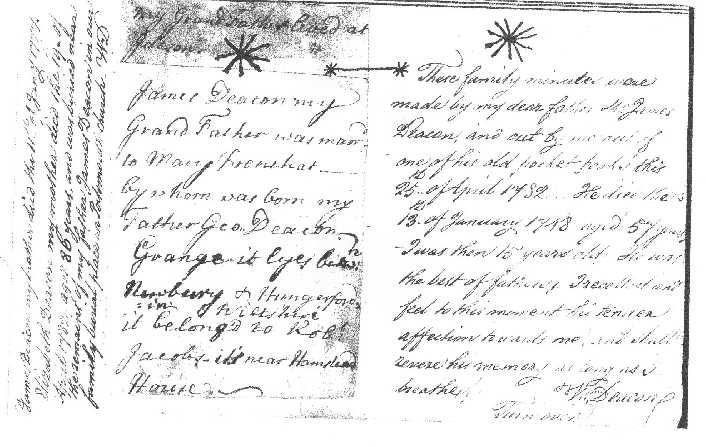 my Grand Father lived at
James Deacon my
Grand Father was marrd
to Mary
by whom was born my
Father Geo. Deacon
Grange it lyes betwn
Newbury & Hungerford
in Wiltshire
it belong'd to Robt
Jacobs it's near Hamstead
House
These family minutes were
made by my dear father Mr James
Deacon, and cut by me out of
one of his old pocket books this
25th of April 1782. He died the
13th of January 1748 aged 57 years
I was then 15 years old. He was
the best of fathers, I recollect and
feel to this moment his tender
affection towards me, and shall
revere his memory as long as I
breathe.
W. Deacon
Turn over
James Deacon my father died the
Elizabeth Deacon my mother died the 19 of
aged 86 years, and was buried with
the remains of my father James Deacon in our
family burial place in church